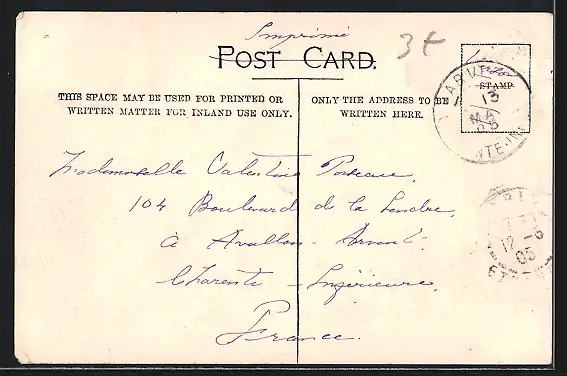 Imprimé
POST CARD.
3f
THIS SPACE MAY BE USED FOR PRINTED OR
WRITTEN MATTER FOR INLAND USE ONLY.
ONLY THE ADDRESS TO BE
WRITTEN HERE.
STAMP
ARVE
13
05
NTE-IN
Mademoiselle Valentine
104 Boulevard de la Lendre,
à Avallon - Arvert -
Charente - Inférieure,
France.
12 - 6
05